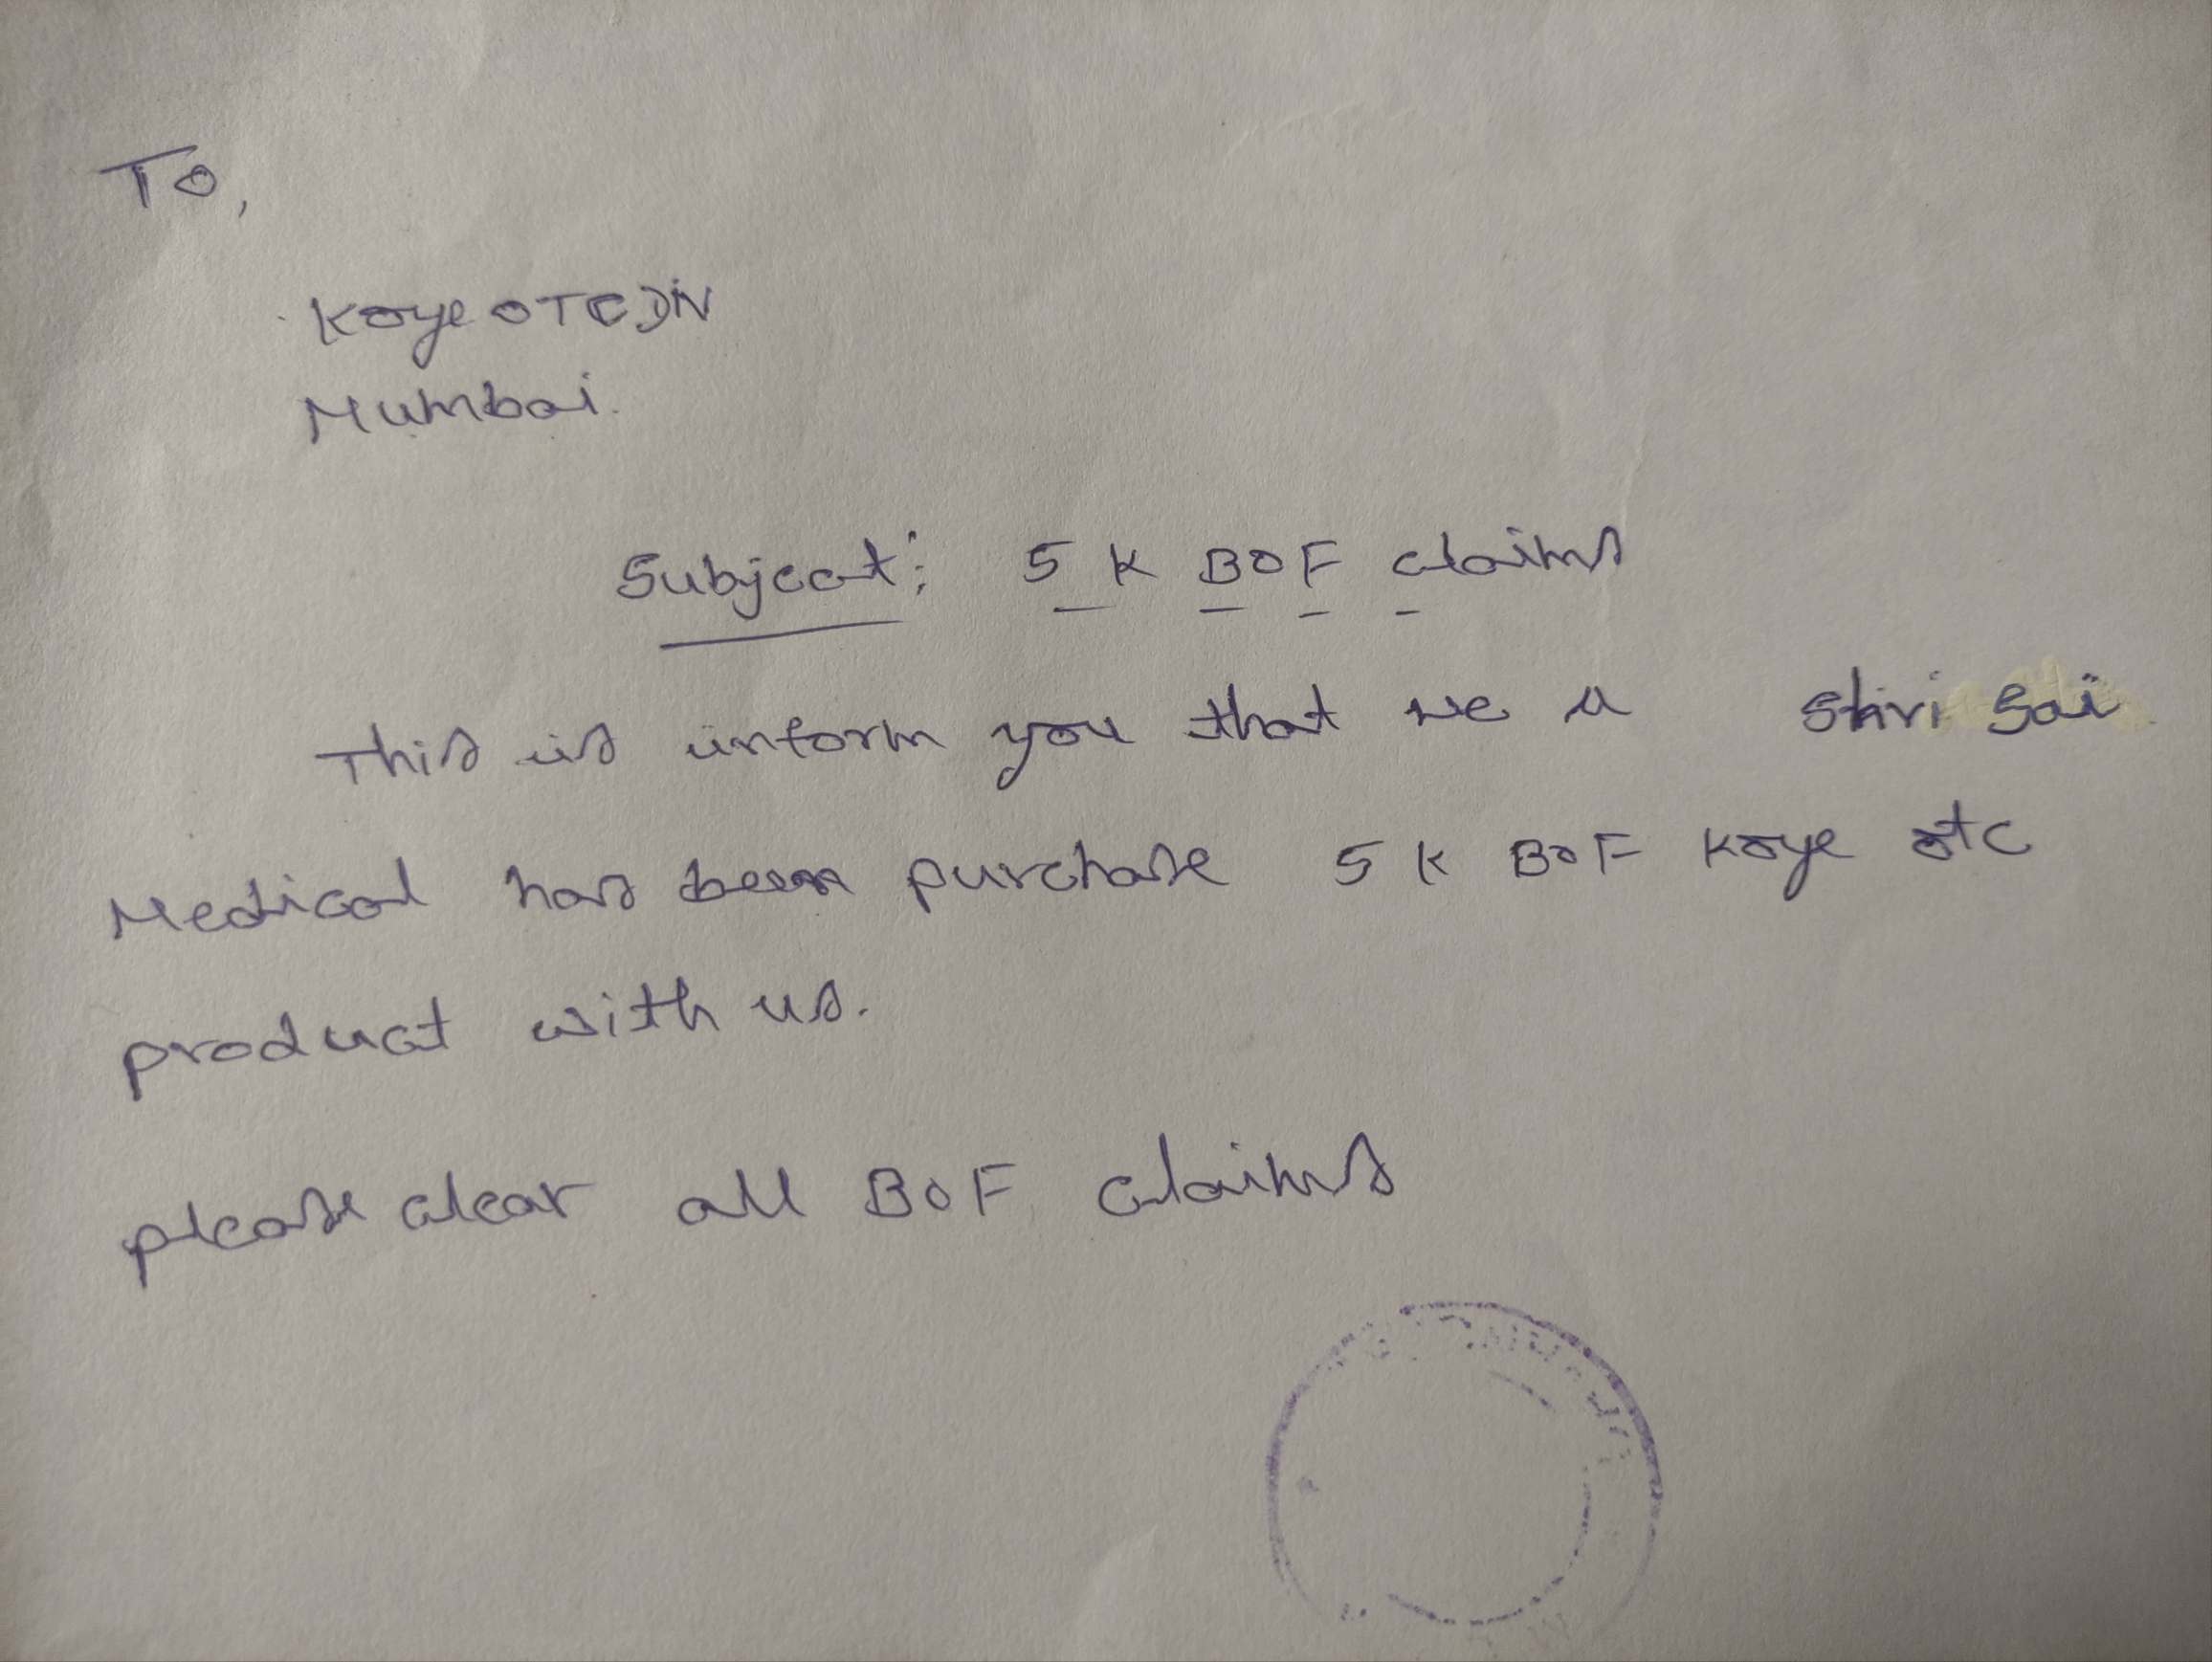 To,
Koye OTC DIV
Mumbai.
Subject: 5 K BOF claims
This is inform you that we a Shri Sai
Medical has been purchase 5 K BOF Koye otc
product with us.
please clear all BOF claims